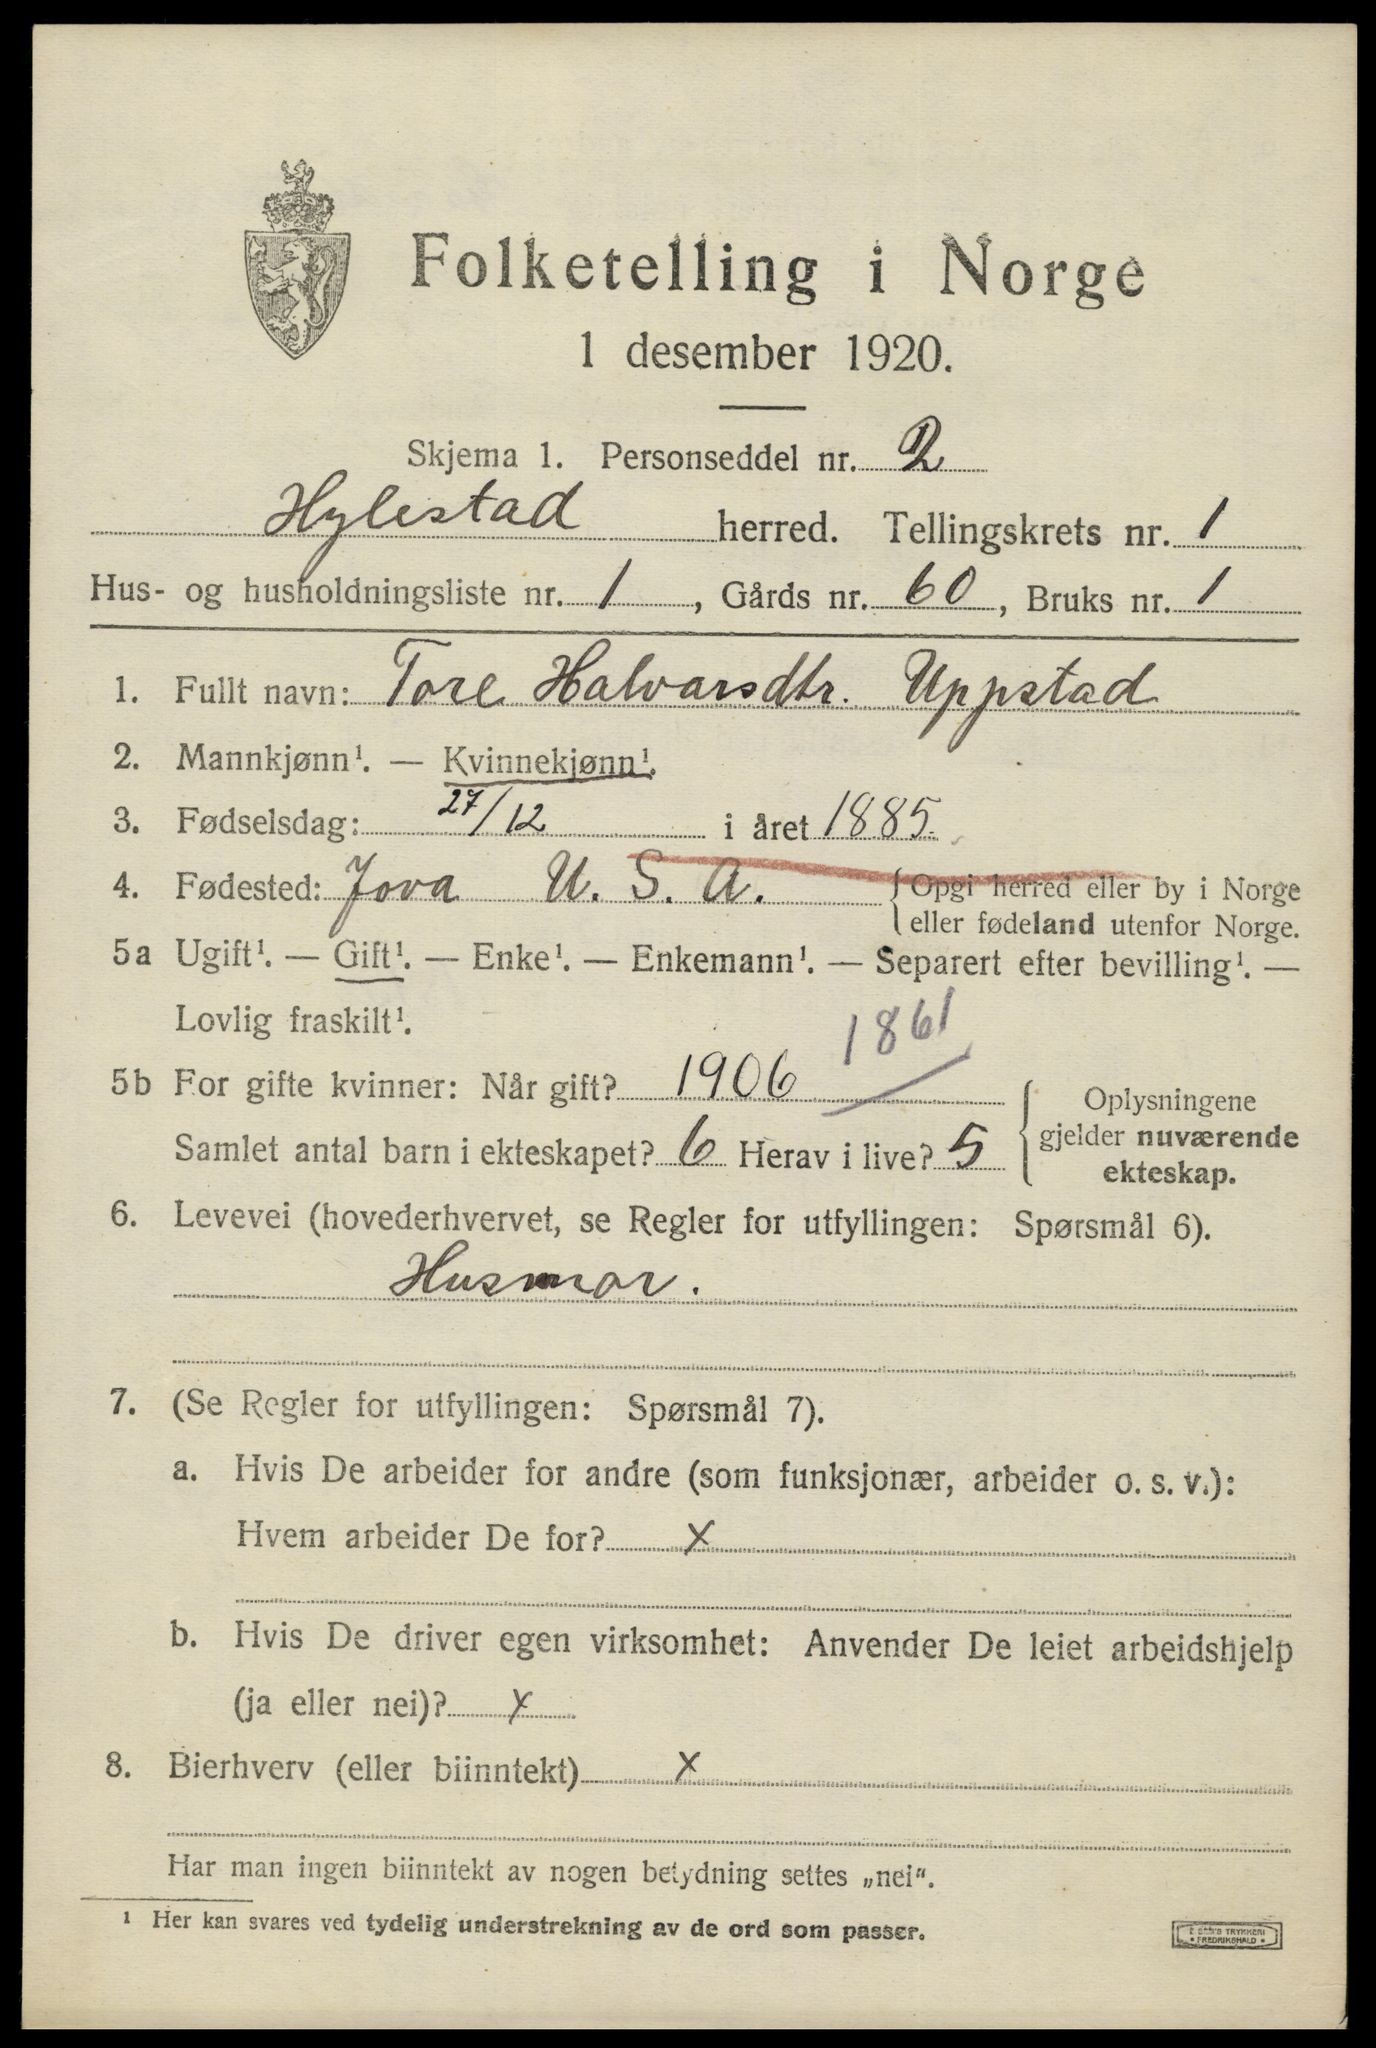 Folketelling i Norge
1 desember 1920.
Skjema 1. Personseddel nr. 2
Hylestad herred. Tellingskrets nr. 1
Hus- og husholdningsliste nr. 1, Gårds nr. 60, Bruks nr. 1
1. Fullt navn: Tore Halvarsdtr. Uppstad
2. Mannkjønn¹. — Kvinnekjønn¹.
3. Fødselsdag: 27/12 i året 1885
4. Fødested: Jova U. S. A. {Opgi herred eller by i Norge
eller fødeland utenfor Norge.
5a Ugift¹. — Gift¹. — Enke¹. — Enkemann¹. — Separert efter bevilling¹. —
Lovlig fraskilt¹.
1861
5b For gifte kvinner: Når gift? 1906
Samlet antal barn i ekteskapet? 6 Herav i live? 5
Oplysningene
gjelder nuværende
ekteskap.
6. Levevei (hovederhvervet, se Regler for utfyllingen: Spørsmål 6).
Husmor.
7. (Se Regler for utfyllingen: Spørsmål 7).
a. Hvis De arbeider for andre (som funksjonær, arbeider o. s. v.):
Hvem arbeider De for? x
b. Hvis De driver egen virksomhet: Anvender De leiet arbeidshjelp
(ja eller nei)? x
8. Bierhverv (eller biinntekt) x
Har man ingen biinntekt av nogen betydning settes „nei".
¹ Her kan svares ved tydelig understrekning av de ord som passer.
TRYKKERI
FREDRIKSHALD